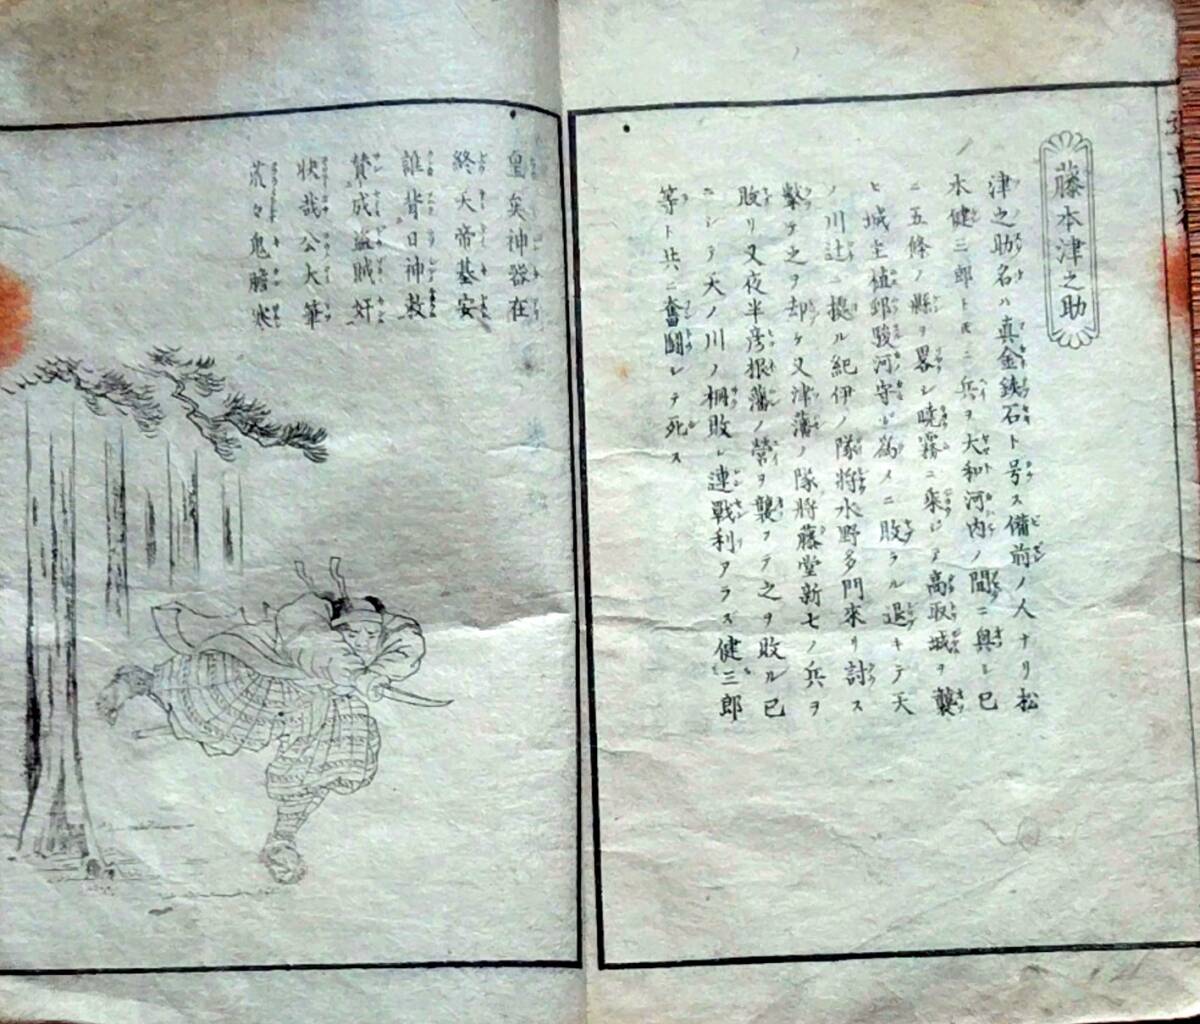 藤本津之助
津之助名ハ真金鉄石ト号ス備前ノ人ナリ松
本健三郎ト氏ニ兵ヲ大和河内ノ間ニ興シ已
ニ五條ノ縣ヲ畧シ曉霧ニ乗シテ高取城ヲ襲
ヒ城主植邨駿河守ガ為メニ敗ラル退キテ天
ノ川辻ニ據ル紀伊ノ隊将水野多門來リ討ス
撃テ之ヲ却ケ又津藩ノ隊将藤堂新七ノ兵ヲ
敗リ又夜半彦根藩ノ營ヲ襲フテ之ヲ敗ル已
ニシテ天ノ川ノ柵敗レ連戰利アラス健三郎
等ト共ニ奮鬪シテ死ス
皇矣神器在
終天帝基安
誰背日神教
賛成盗賊奸
快哉公大筆
荒々鬼膽寒